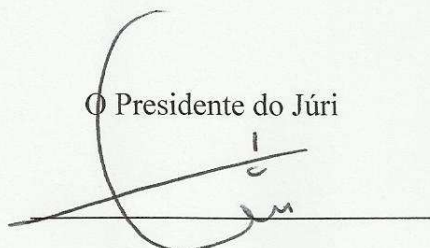 O Presidente do Júri